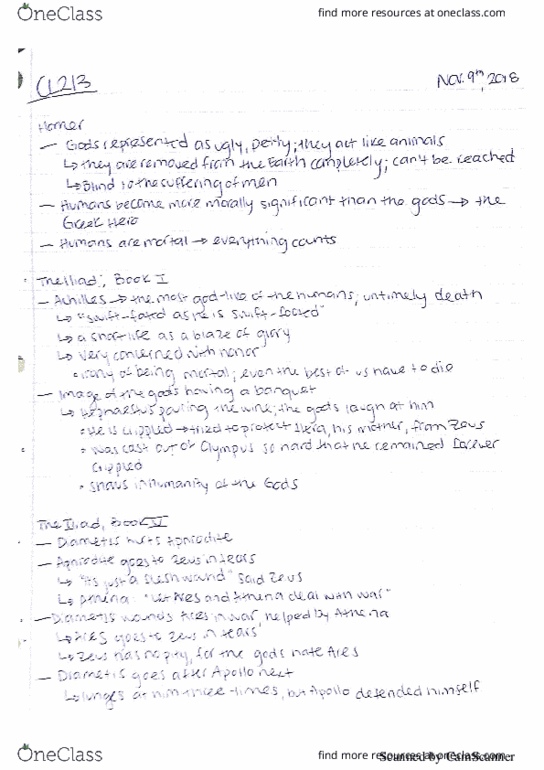 OneClass
find more resources at oneclass.com
CL213
Nov. 9th, 2018
Homer
— Gods represented as ugly, petty; they act like animals
↳ they are removed from the Earth completely; can't be reached
↳ Blind to the suffering of men
— Humans become more morally significant than the gods → the
Greek Hero
— Humans are mortal → everything counts
The Iliad, Book I
— Achilles → the most god-like of the humans, untimely death
↳ "swift-fated as he is swift-footed"
↳ a short life as a blaze of glory
↳ very concerned with honor
• irony of being mortal; even the best of us have to die
— Image of the gods having a banquet
↳ Hephaestus pouring the wine; the gods laugh at him
• He is crippled → tried to protect Hera, his mother, from Zeus
• was cast out of Olympus so hard that he remained forever
crippled
• shows inhumanity of the Gods
The Iliad, Book VI
— Diametis hurts Aphrodite
— Aphrodite goes to Zeus in tears
↳ "its just a flesh wound" said Zeus
↳ Athena: "let Ares and Athena deal with war"
— Diametis wounds Ares in war, helped by Athena
↳ Ares goes to Zeus in tears
↳ Zeus has no pity, for the gods hate Ares
— Diametis goes after Apollo next
↳ lunges at him three times, but Apollo defended himself
OneClass
find more resources at oneclass.com
Scanned by CamScanner